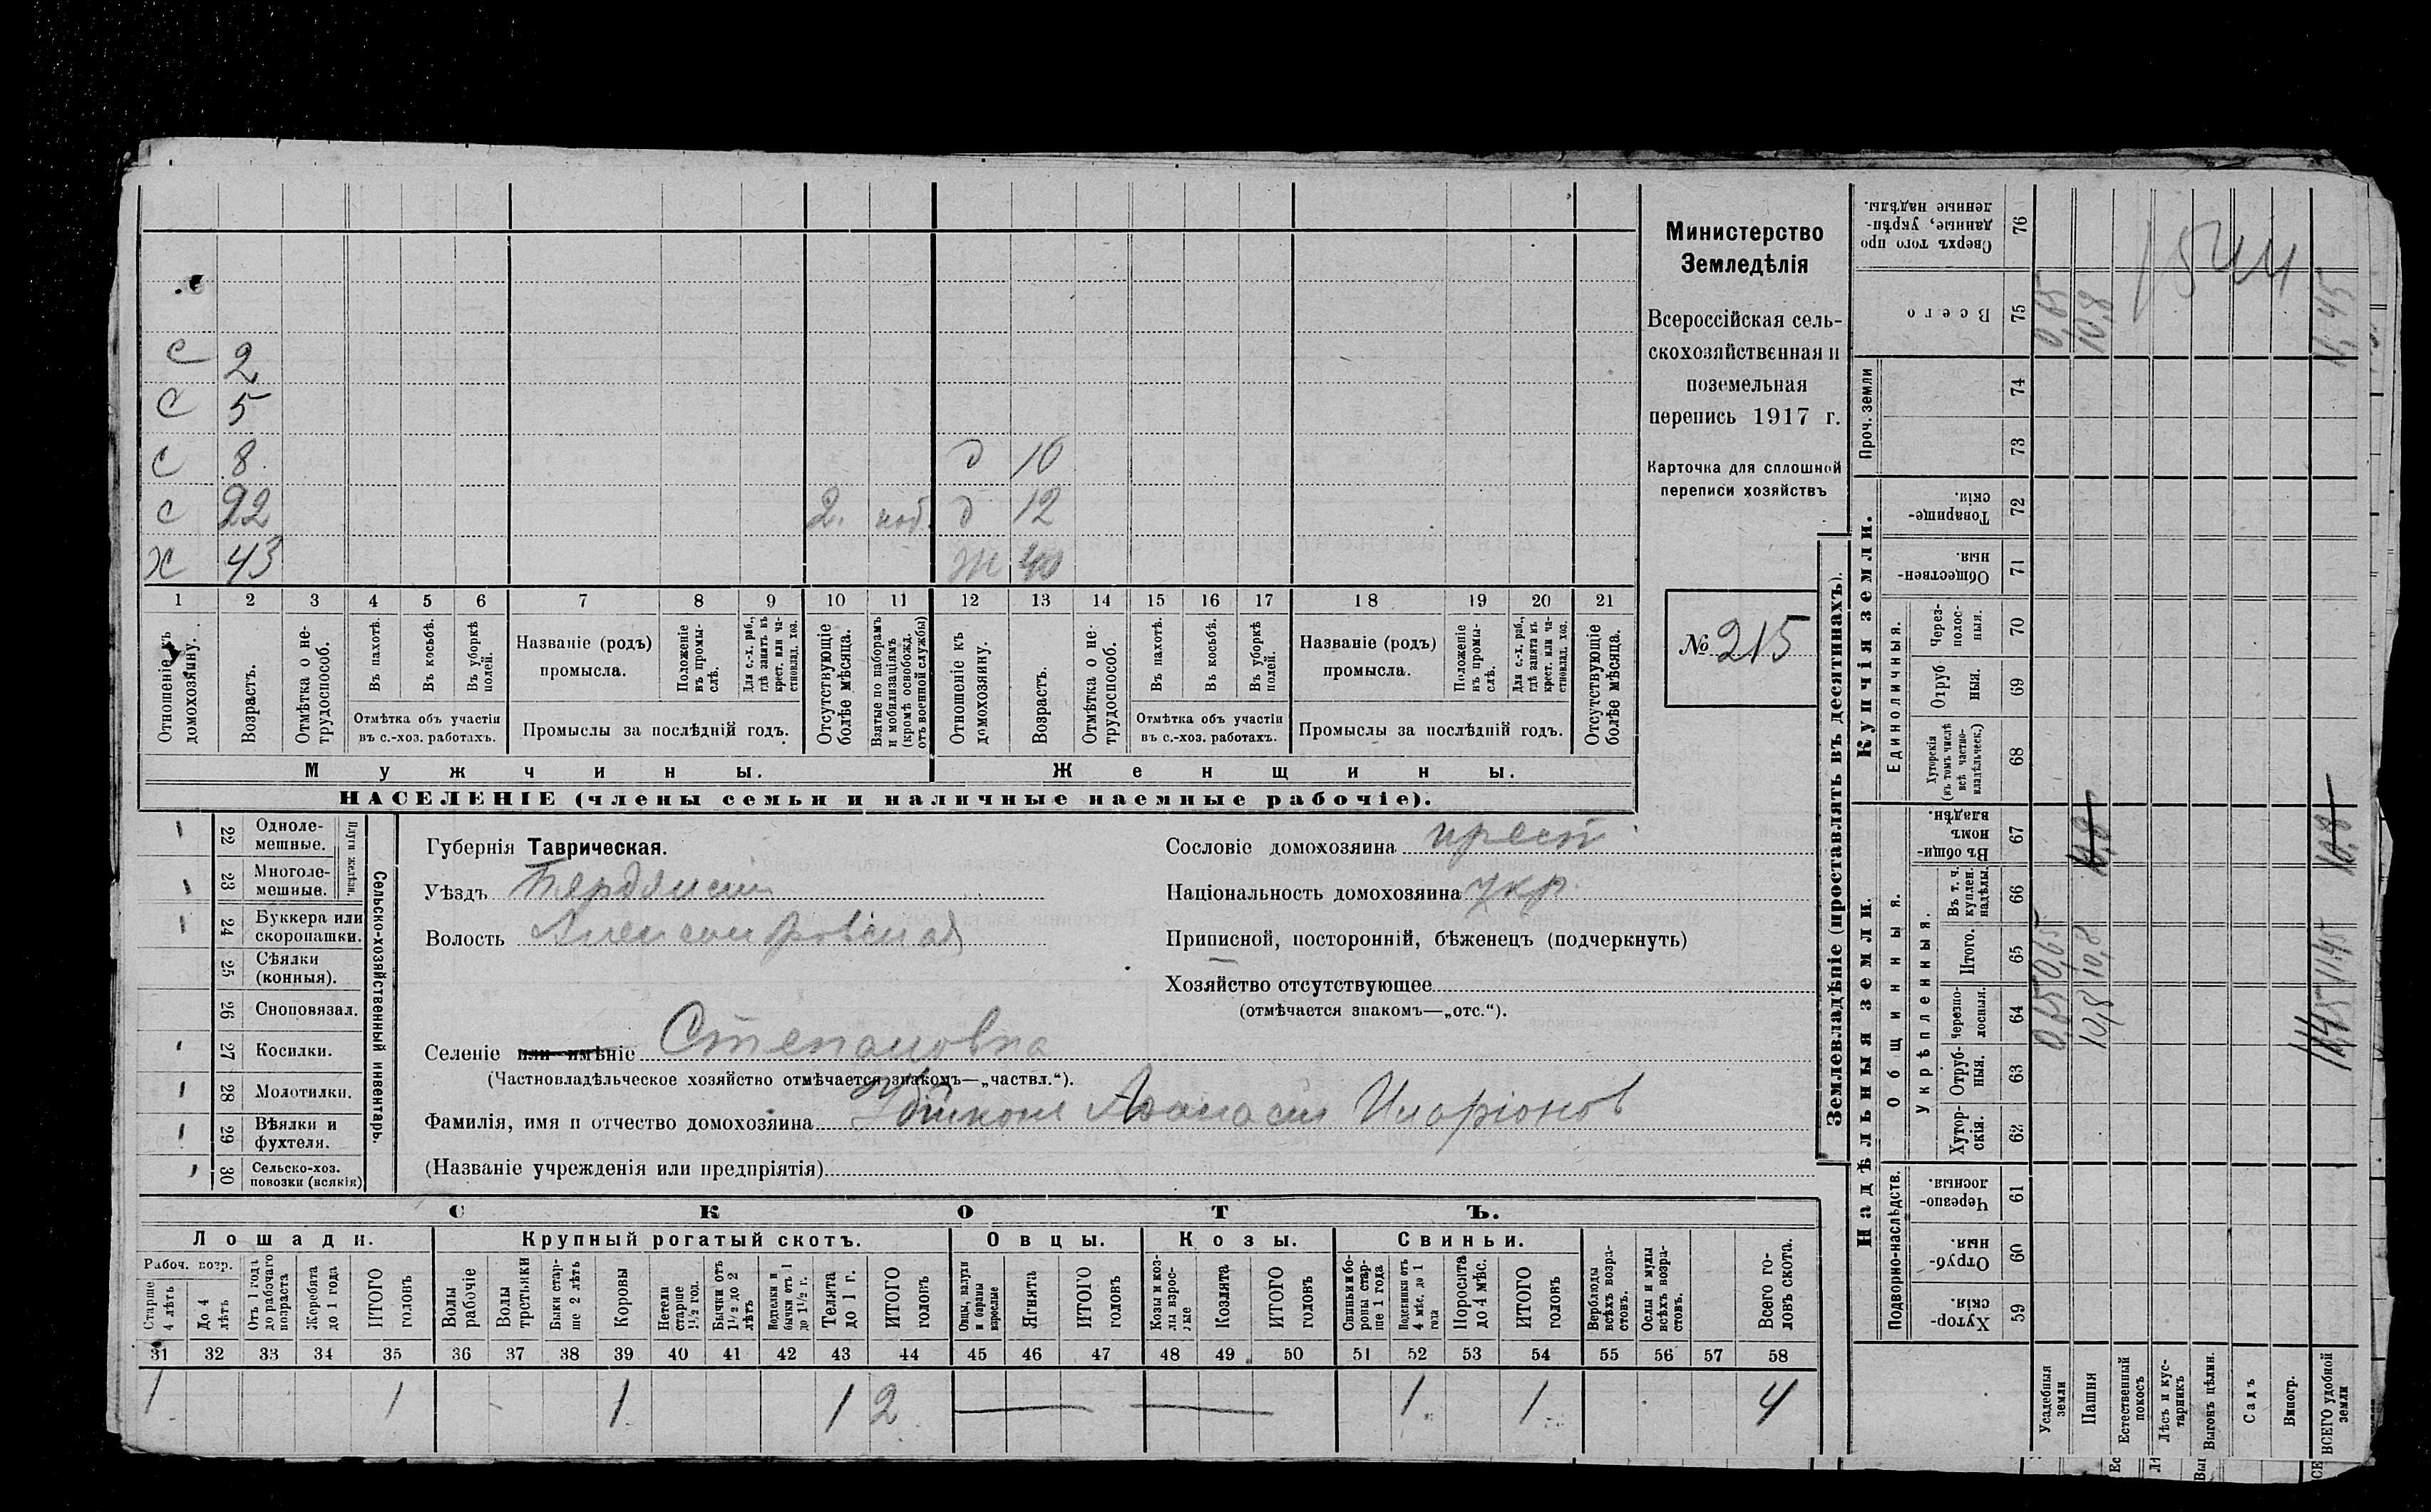 с 2
с 5
с 8 д 10
с 22 2. моб. д 12
х 43 ж 40
1 2 3 4 5 6 7 8 9 10 11 12 13 14 15 16 17 18 19 20 21
Отношеніе къ домохозяину.
Возрастъ.
Отмѣтка о не-трудоспособ.
Въ пахотѣ.
Въ косьбѣ.
Въ уборкѣ полей.
Отмѣтка объ участіи въ с.-хоз. работахъ.
Названіе (родъ) промысла.
Положеніе въ промы-слѣ.
Для с.-х. раб., гдѣ занятъ въ крест. или ча-стновлад. хоз.
Промыслы за послѣдній годъ.
Отсутствующіе болѣе мѣсяца.
Взятые по наборамъ и мобилизаціямъ (кромѣ освобожд. отъ военной службы)
Отношеніе къ домохозяину.
Возрастъ.
Отмѣтка о не-трудоспособ.
Въ пахотѣ.
Въ косьбѣ.
Въ уборкѣ полей.
Отмѣтка объ участіи въ с.-хоз. работахъ.
Названіе (родъ) промысла.
Положеніе въ промы-слѣ.
Для с.-х. раб., гдѣ занята въ крест. или ча-стновлад. хоз.
Промыслы за послѣдній годъ.
Отсутствующіе болѣе мѣсяца.
Мужчины.
Женщины.
НАСЕЛЕНІЕ (члены семьи и наличные наемные рабочіе).
Министерство
Земледѣлія
Всероссійская сель-
скохозяйственная и
поземельная
перепись 1917 г.
Карточка для сплошной
переписи хозяйствъ
№ 215
22 Одноле-мешные.
23 Многоле-мешные.
Плуги желѣзн.
24 Буккера или скоропашки.
25 Сѣялки (конныя).
26 Сноповязал.
27 Косилки.
28 Молотилки.
29 Вѣялки и фухтеля.
30 Сельско-хоз. повозки (всякія)
Сельско-хозяйственный инвентарь.
Губернія Таврическая.
Уѣздъ Бердянскій
Волость
Селеніе или имѣніе Степановка
(Частновладѣльческое хозяйство отмѣчается знакомъ—„частвл.“).
Фамилія, имя и отчество домохозяина Афанасій Иларіоновъ
(Названіе учрежденія или предпріятія)
Сословіе домохозяина крест
Національность домохозяина укр.
Приписной, посторонній, бѣженецъ (подчеркнуть)
Хозяйство отсутствующее
(отмѣчается знакомъ—„отс.“).
СКОТЪ.
Лошади.
Крупный рогатый скотъ.
Овцы.
Козы.
Свиньи.
Рабоч. возр.
Старше 4 лѣтъ
До 4 лѣтъ
Отъ 1 года до рабочаго возраста
Жеребята до 1 года
ИТОГО головъ
Волы рабочіе
Волы третьяки
Быки стар-ше 2 лѣтъ
Коровы
Нетели старше 1½ год.
Бычки отъ 1½ до 2 лѣтъ
Подтелки и бычки отъ 1 до 1½ г.
Телята до 1 г.
ИТОГО головъ
Овцы, валухи и бараны взрослые
Ягнята
ИТОГО головъ
Козы и коз-лы взрос-лые
Козлята
ИТОГО головъ
Свиньи и бо-ровы стар-ше 1 года
Подсвинки отъ 4 мѣс. до 1 года
Поросята до 4 мѣс.
ИТОГО головъ
Верблюды всѣхъ возра-стовъ.
Ослы и мулы всѣхъ возра-стовъ.
Всего го-ловъ скота.
31 32 33 34 35 36 37 38 39 40 41 42 43 44 45 46 47 48 49 50 51 52 53 54 55 56 57 58
1 1 1 1 2 1 1 4
Землевладѣніе (проставлять въ десятинахъ).
Надѣльныя земли.
Купчія земли.
Проч. земли
Сверхъ того про данные, укрѣп-ленные надѣлы. 76
Всего 75
74
73
Товарище-скія. 72
Обществен-ныя. 71
Единоличныя.
Через-полос-ныя. 70
Отруб ныя. 69
Хуторскія (въ томъ числѣ всѣ частно-владѣльческ.) 68
Общинныя.
Укрѣпленныя.
Въ общин-номъ владѣн. 67
Въ т. ч. куплен. надѣлы. 66
Итого. 65
Черезпо-лосныя. 64
Отруб-ныя. 63
Хутор-скія. 62
Подворно-наслѣдств.
Черезпо-лосныя. 61
Отруб-ныя. 60
Хутор-скія. 59
Усадебныя земли
Пашня
Естественный покосъ
Лѣсъ и кус-тарникъ
Выгонъ цѣлин.
Садъ
Виногр.
ВСЕГО удобной земли
0,65 10,8 11,45
1544
10,8 10,8
0,65 10,8 11,45
0,65 10,8